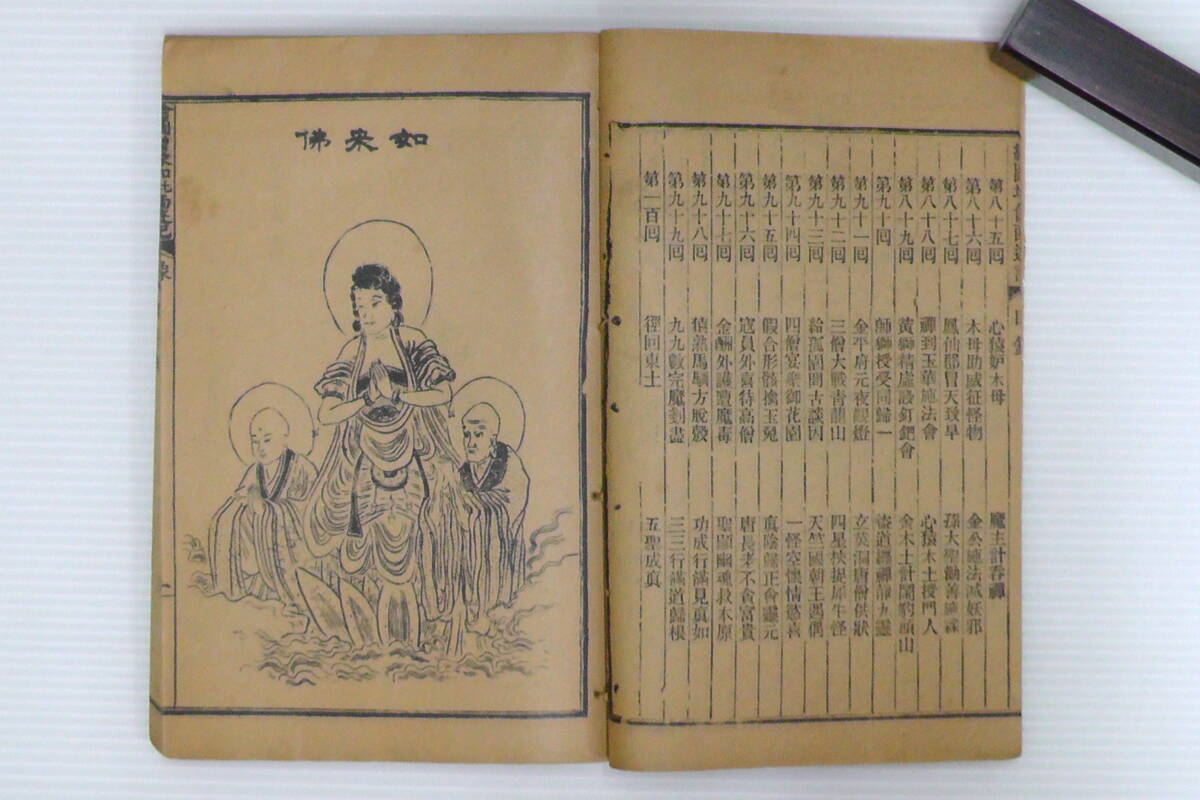 第八十五囘 心猿妒木母 魔主計吞禪
第八十六囘 木母助威征怪物 金公施法滅妖邪
第八十七囘 鳳仙郡冒天致旱 孫大聖勸善施霖
第八十八囘 禪到玉華施法會 心猿木土授門人
第八十九囘 黃獅精虛設釘鈀會 金木土計鬧豹頭山
第九十囘 師獅授受同歸一 盜道纏禪靜九靈
第九十一囘 金平府元夜觀燈 立英洞唐僧供狀
第九十二囘 三僧大戰青龍山 四星挾捉犀牛怪
第九十三囘 給孤園問古談因 天竺國朝王遇偶
第九十四囘 四僧宴樂御花園 一怪空懷情慾喜
第九十五囘 假合形骸擒玉兔 眞陰歸正會靈元
第九十六囘 寇員外喜待高僧 唐長老不貪富貴
第九十七囘 金酬外護遭魔毒 聖顯幽魂救本原
第九十八囘 猿熟馬馴方脫殼 功成行滿見眞如
第九十九囘 九九數完魔剗盡 三三行滿道歸根
第一百囘 徑回東土 五聖成眞
如來佛
像
一